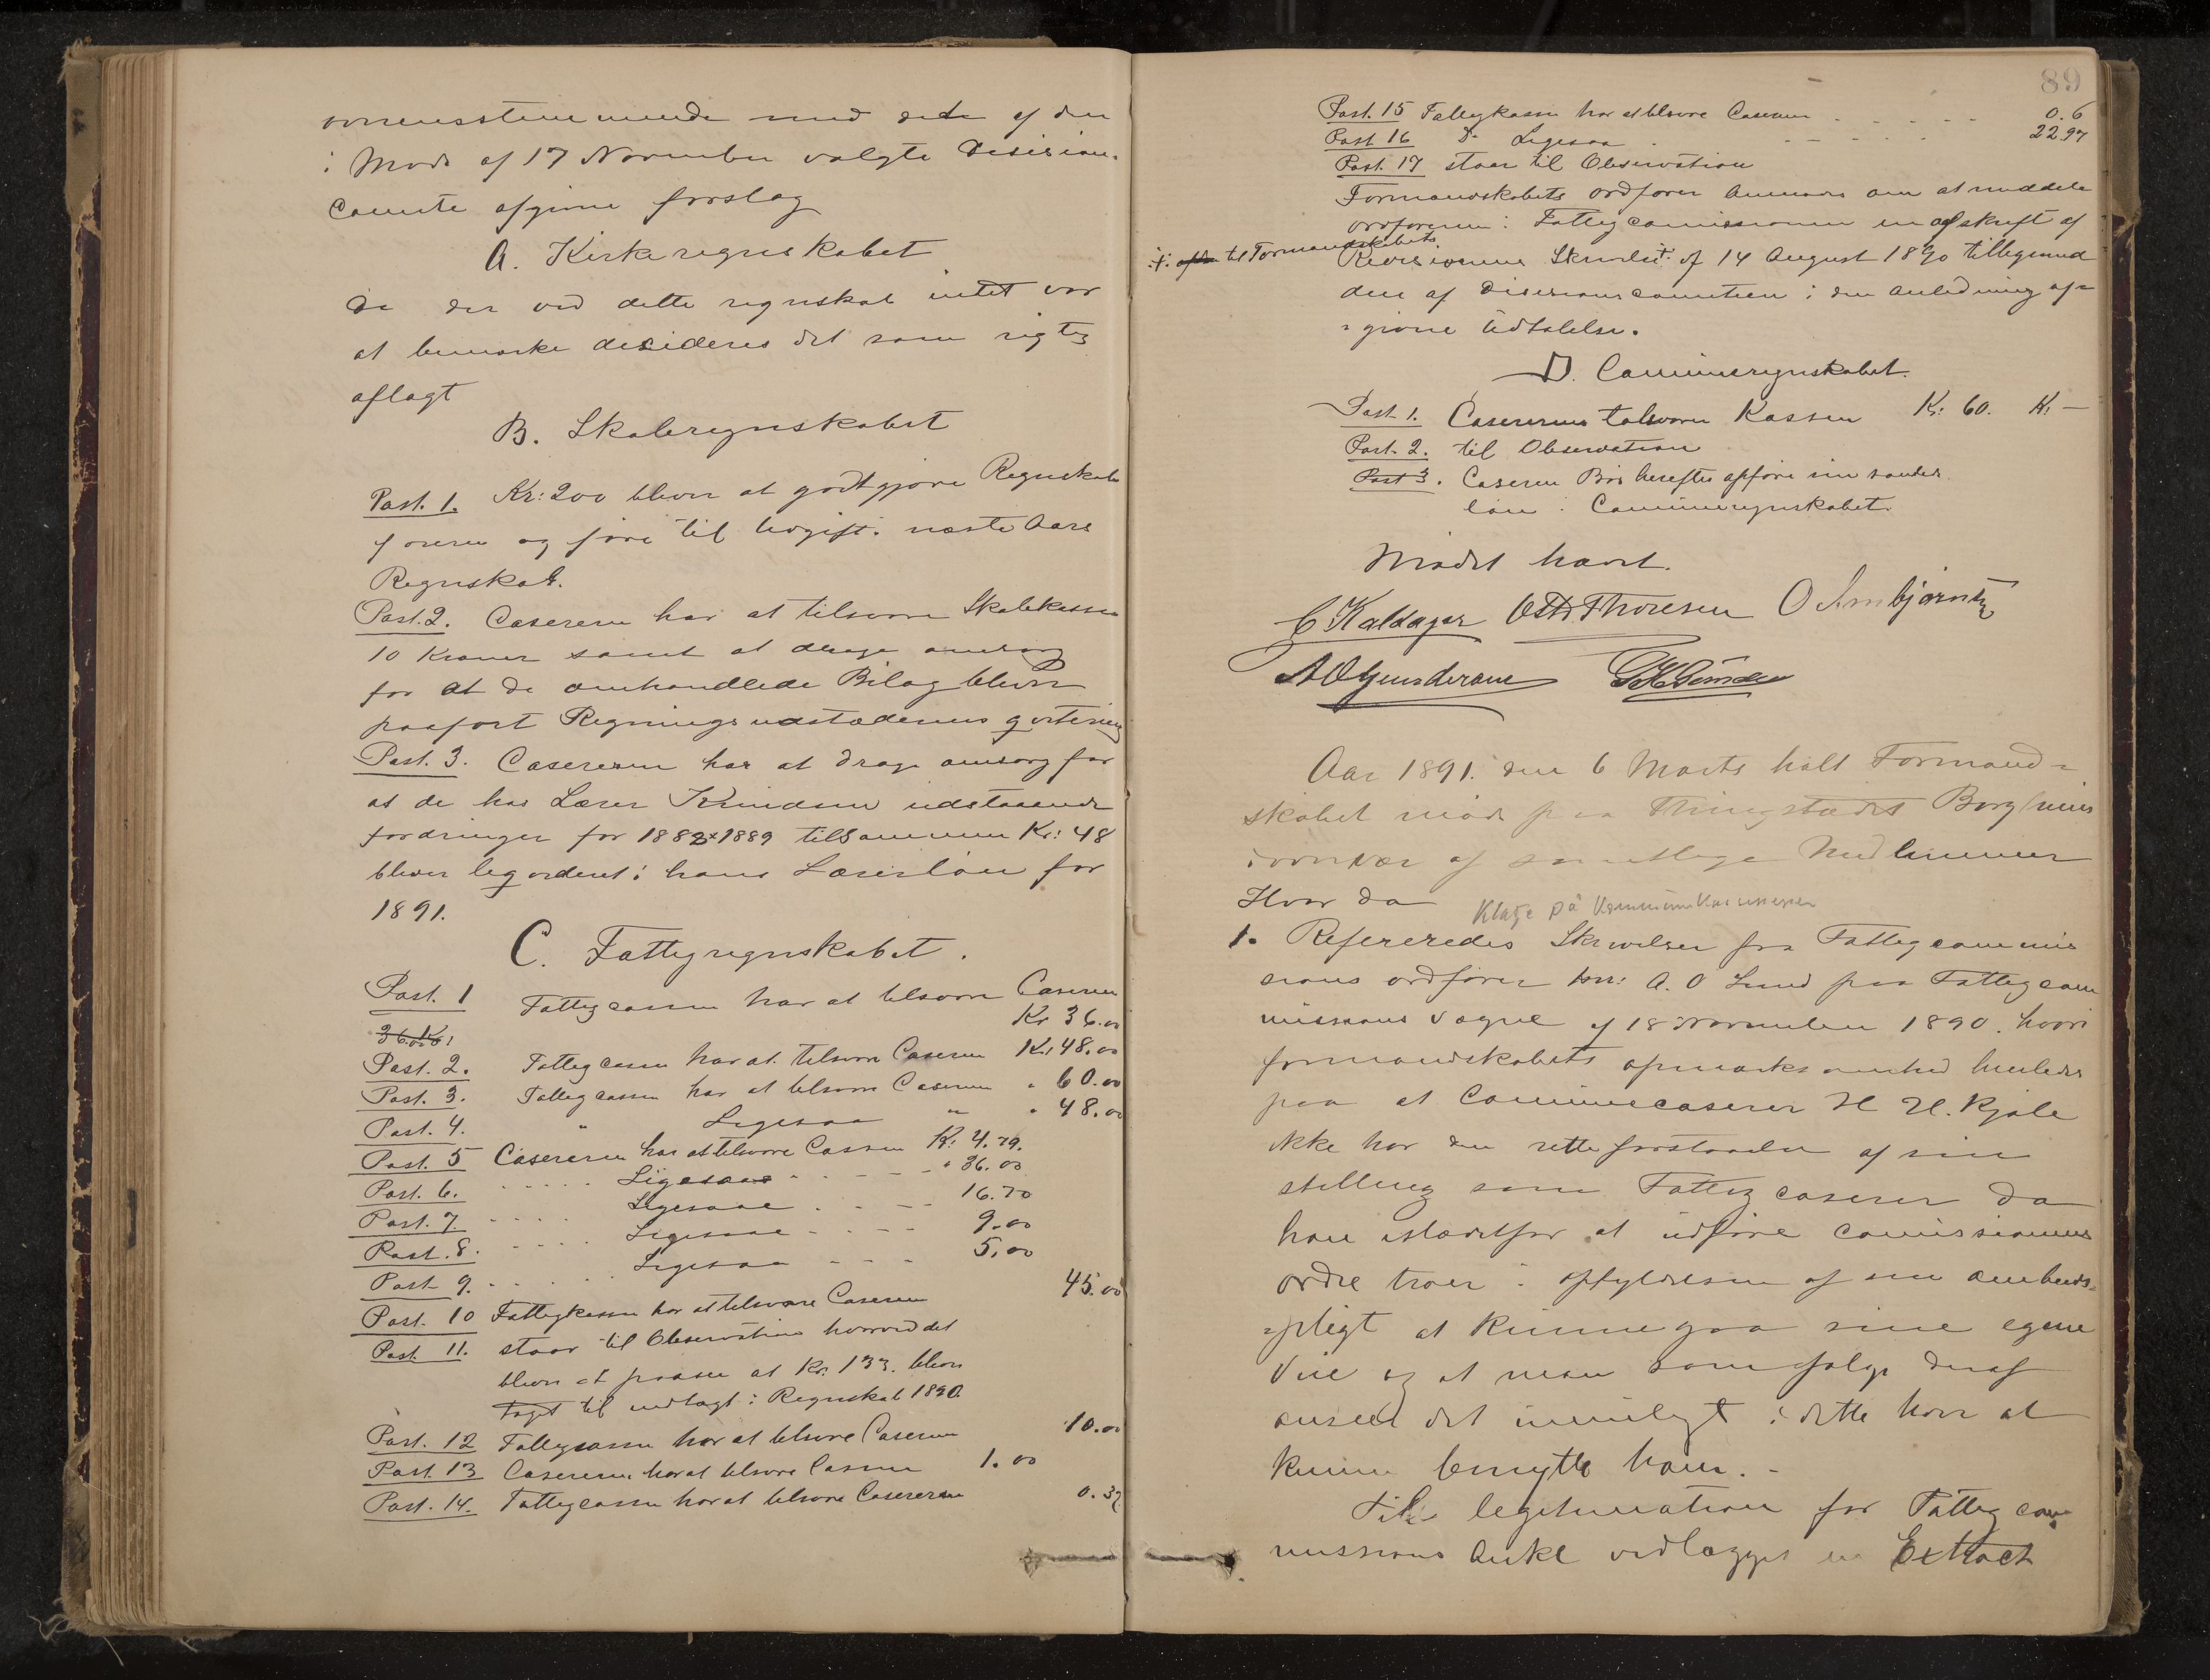 overensstemmende med det af den
i Møde af 17 November valgte Desisions
Comite afgivne forslag
A. Kirkeregnskabet
Da der ved dette regnskab intet var
at bemærke desideres det som rigtig
aflagt
B. Skoleregnskabet
Post. 1. Kr: 200 bliver at godtgjøre Regnskabs
føreren og føre til Udgift i næste Aars
Regnskab.
Post. 2. Casereren har at tilsvare Skolekassen
10 Kroner samt at drage omsorg
for at de omhandlede Bilag bliver
paaført Regningsudstædernes qvitering
Post. 3. Casereren har at drage omsorg for
at de hos Lærer Knudsen udstaaende
fordringer for 1888 & 1889 tilsammen Kr: 48
bliver liqvideret i hans Læreløn for
1891.
C. Fattigregnskabet.
Post. 1 Fattigcassen har at tilsvare Caseren
Kr 36.00
Post. 2. Fattigcassen har at tilsvare Caseren Kr. 48.00
Post. 3. Fattigcassen har at tilsvare Caseren " 60.00
Post. 4. " Ligesaa " " 48.00
Post. 5 Casereren har at tilsvare Cassen Kr. 4.79.
Post. 6. Ligesaa " 36.00
Post. 7. Ligesaa 16.70
Post. 8. Ligesaa 9.00
Post 9. Ligesaa 5.00
Post. 10 Fattigkassen har at tilsvare Caseren 45.00
Post. 11. staar til Observation hvorved det
bliver at paasee at Kr. 133. bliver
taget til indtægt i Regnskab 1890.
Post. 12 Fattigcassen har at tilsvare Caseren 10.00
Post. 13 Casereren har at tilsvare Cassen 1.00
Post. 14. Fattigcassen har at tilsvare Casereren 0.32
89
Post. 15 Fattigkassen har at tilsvare Caseren 0.6
Post 16 Do Ligesaa 22 97
Post. 17 staar til Observation
Formandskabets ordfører anmodes om at meddele
ordføreren i Fattigcomissionen en afskrift af
·/· til Formandskabets
Revisionens Skrivelse ·/· af 14 August 1890 tilligemed
den af Desisionscomiteen i den anledning af=
=givne Udtalelse.
D. Communeregnskabet.
Post 1. Casererens tilsvarer Kassen Kr: 60. Kr —
Post. 2. til Observation
Post 3. Caseren Bør herefter opføre sin
løn i Communeregnskabet.
Mødet hævet.
C Kaldager Ostb. Thoresen O Arnbjørnsen
Aar 1891. den 6 Marts holt Formand=
skabet møde paa Thingstædet
i overvær af samtlige Medlemmer
Hvor da
Klage på Kommunekassereren
1. Refereredes Skrivelser fra Fattigcommis
sions ordfører hrr: A. O Lund paa Fattigcom
missions vegne af 18 November 1890. hvori
formandskabets opmærksomhed henledes
paa at Communecaserer H H. Kjøle
ikke har den rette forstaaelse af sin
stilling som Fattigcaserer da
han istædetfor at udføre Comissionens
ordre troer i opfyldelsen af sin embeds=
=pligt at kunne gaa sine egne
veie og at man som følge deraf
anseer det umuligt i dette hvor at
kunne benytte ham. -
Til legitimation for Fattigcom
missions Anke vedlægges en Extract